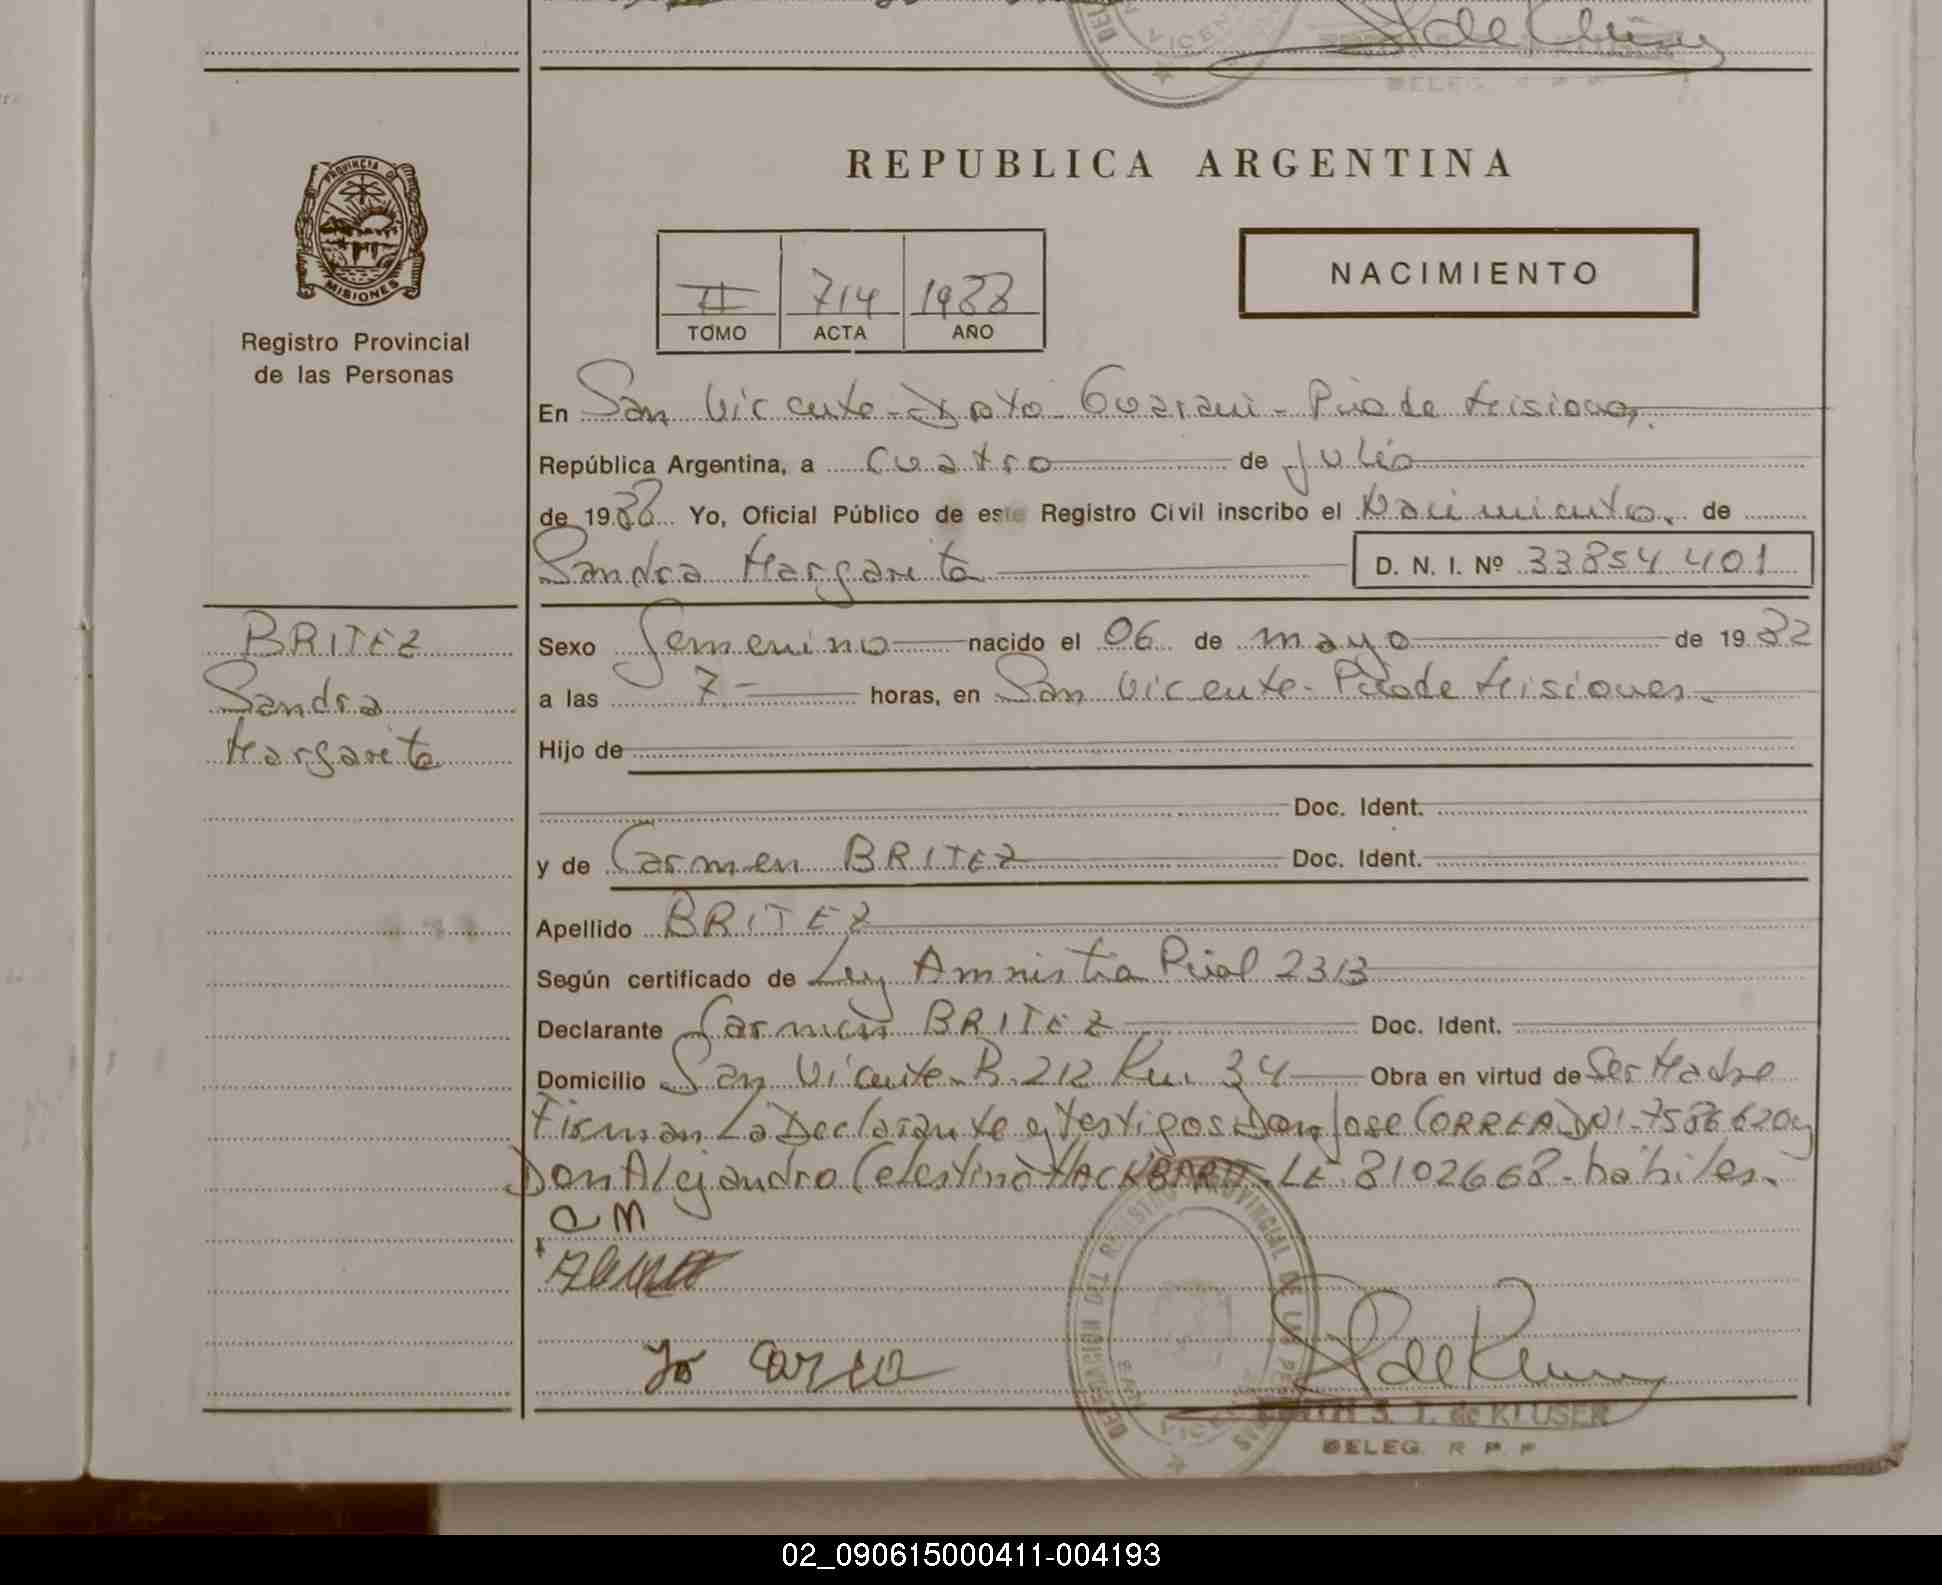 REPUBLICA ARGENTINA
PROVINCIA DE MISIONES
Registro Provincial
de las Personas
II 714 1988
TOMO ACTA AÑO
NACIMIENTO
En San Vicente - Dpto Guarani - Pcia de Misiones.
República Argentina, a cuatro de Julio
de 1988 Yo, Oficial Público de este Registro Civil inscribo el Nacimiento. de
Sandra Margarita D. N. I. Nº 33854401
BRITEZ
Sandra
Margarita
Sexo Femenino nacido el 06 de mayo de 19
a las 7- horas, en San Vicente - Pcia de Misiones.
Hijo de
Doc. Ident.
y de Carmen BRITEZ Doc. Ident.
Apellido BRITEZ
Según certificado de Ley Amnistia Pcial 2313
Declarante Carmen BRITEZ Doc. Ident.
Domicilio San Vicente - R. 212 Km. 34 Obra en virtud de Ser Madre
Firman La Declarante y testigos Don Jose CORREA DNI - 7586620 y
Don Alejandro Celestino HACKBARD - LE 8102668 - habiles.
C M
Jo correa
REGISTRO PROVINCIAL DE LAS PERSONAS
S. T. de KLUSER
DELEG. R P P
02_090615000411-004193